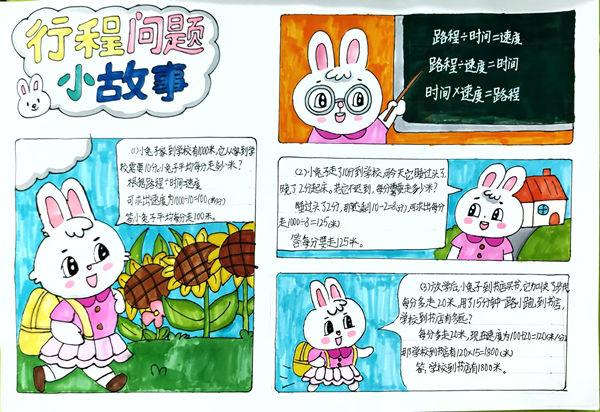 行程问题
小故事
路程÷时间=速度
路程÷速度=时间
时间×速度=路程
(1)小兔子家到学校有1000米,它从家到学
校需要10分,小兔子平均每分走多少米?
根据路程÷时间=速度
可求出速度为1000÷10=100(米/分)
答:小兔子平均每分走100米。
(2)小兔子走了10分到学校,
今天它睡过头了,
晚了2分起床。若它不迟到,每分需要走多少米?
睡过头了2分,那就剩10-2=8(分),可求出每分
走1000÷8=125(米)
答:每分要走125米。
(3)放学后,小兔子到书店买书,它加快了步伐,
每分多走20米,用了15分钟一路小跑到书店,
学校到书店有多远?
每分多走20米,现在速度为100+20=120(米/分)
那学校到书店有120×15=1800(米)
答:学校到书店有1800米。